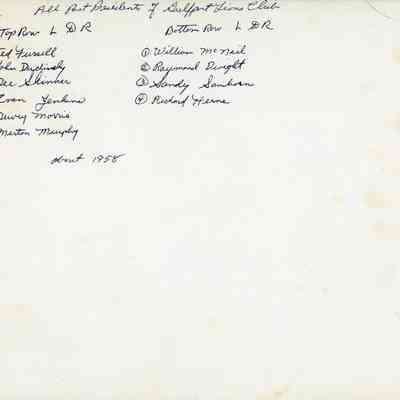 All Past Presidents of Gulfport Lions Club
Top Row L D R
Bottom Row L D R
Ted Fussell
John
Dee Skinner
Evan Jenkins
Dewey Morris
Merton Murphy
① William McNail
② Raymond Dwight
③ Sandy Sanborn
④ Richard Herns
about 1958